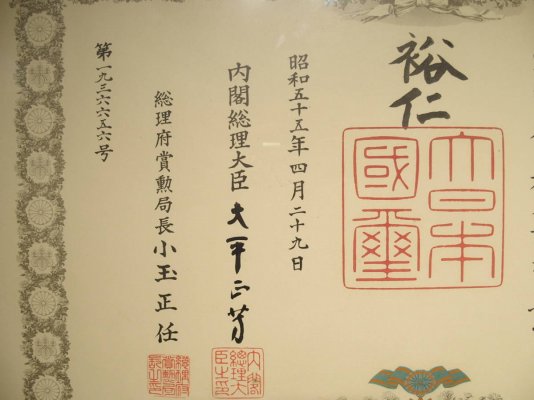 裕仁
大日本國璽
昭和五十五年四月二十九日
内閣総理大臣 大平正芳
内閣総理大臣之印
総理府賞勲局長 小玉正任
第一九三六六五六号